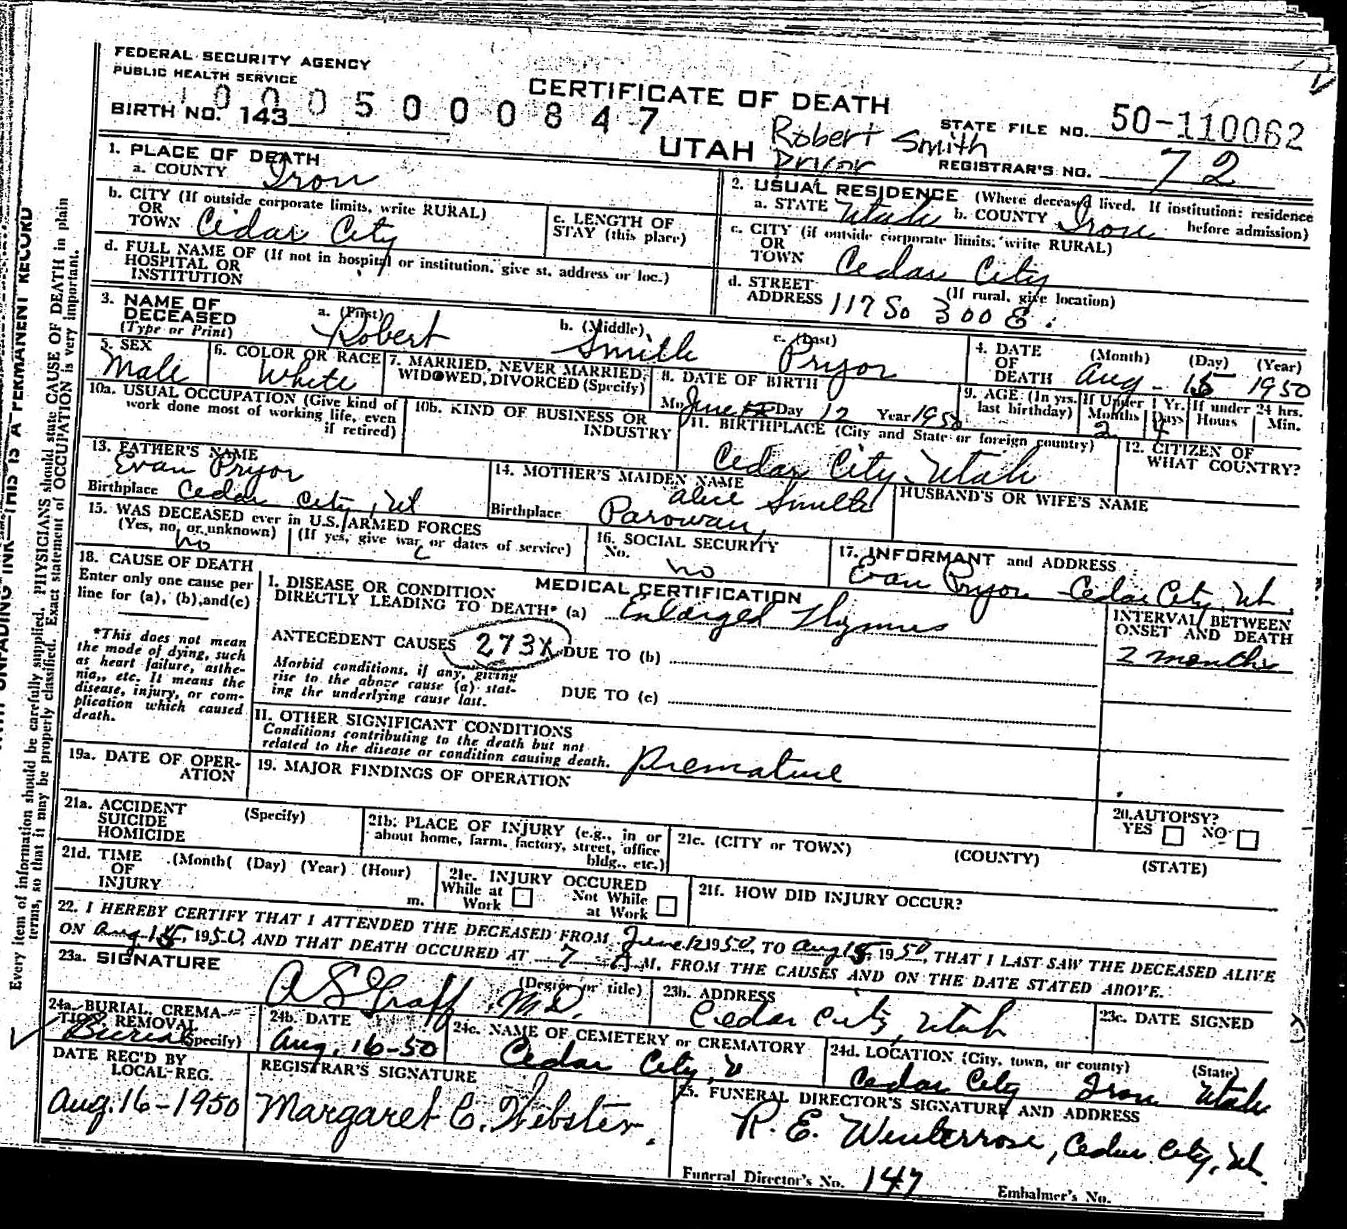 FEDERAL SECURITY AGENCY
PUBLIC HEALTH SERVICE
CERTIFICATE OF DEATH
0 0 0 5 0 0 0 0 8 4 7
BIRTH NO. 143
UTAH
Robert Smith
Pryor
STATE FILE NO. 50-110062
REGISTRAR'S NO. 72
1. PLACE OF DEATH
a. COUNTY Iron
b. CITY (If outside corporate limits, write RURAL)
OR
TOWN Cedar City
c. LENGTH OF
STAY (this place)
d. FULL NAME OF (If not in hospital or institution, give st. address or loc.)
HOSPITAL OR
INSTITUTION
2. USUAL RESIDENCE (Where deceased lived. If institution: residence
before admission)
a. STATE Utah b. COUNTY Iron
c. CITY (if outside corporate limits, write RURAL)
OR
TOWN Cedar City
d. STREET (If rural, give location)
ADDRESS 117 So 300 E.
3. NAME OF
DECEASED
(Type or Print)
a. (First) Robert
b. (Middle) Smith
c. (Last) Pryor
4. DATE
OF
DEATH
(Month) (Day) (Year)
Aug - 15 1950
5. SEX
Male
6. COLOR OR RACE
White
7. MARRIED, NEVER MARRIED,
WIDOWED, DIVORCED (Specify)
8. DATE OF BIRTH
Mo June Day 12 Year 1950
9. AGE (In yrs.
last birthday)
If Under 1 Yr.
Months Days
2 4
If under 24 hrs.
Hours Min.
10a. USUAL OCCUPATION (Give kind of
work done most of working life, even
if retired)
10b. KIND OF BUSINESS OR
INDUSTRY
11. BIRTHPLACE (City and State or foreign country)
Cedar City, Utah
12. CITIZEN OF
WHAT COUNTRY?
13. FATHER'S NAME
Evan Pryor
Birthplace Cedar City, Ut
14. MOTHER'S MAIDEN NAME
Alice Smith
Birthplace Parowan,
HUSBAND'S OR WIFE'S NAME
15. WAS DECEASED ever in U.S. ARMED FORCES
(Yes, no, or unknown) (If yes, give war or dates of service)
no
16. SOCIAL SECURITY
No.
no
17. INFORMANT and ADDRESS
Evan Pryor - Cedar City, Ut.
18. CAUSE OF DEATH
Enter only one cause per
line for (a), (b), and (c)
*This does not mean
the mode of dying, such
as heart failure, asthe-
nia,, etc. It means the
disease, injury, or com-
plication which caused
death.
MEDICAL CERTIFICATION
I. DISEASE OR CONDITION
DIRECTLY LEADING TO DEATH* (a) Enlarged Thymus
ANTECEDENT CAUSES 273X DUE TO (b)
Morbid conditions, if any, giving
rise to the above cause (a) stat-
ing the underlying cause last.
DUE TO (c)
INTERVAL BETWEEN
ONSET AND DEATH
2 months
II. OTHER SIGNIFICANT CONDITIONS
Conditions contributing to the death but not
related to the disease or condition causing death.
Premature
19a. DATE OF OPER-
ATION
19. MAJOR FINDINGS OF OPERATION
20. AUTOPSY?
YES NO
21a. ACCIDENT
SUICIDE
HOMICIDE
(Specify)
21b. PLACE OF INJURY (e.g., in or
about home, farm, factory, street, office
bldg., etc.)
21c. (CITY OR TOWN) (COUNTY) (STATE)
21d. TIME (Month( (Day) (Year) (Hour)
OF
INJURY m.
21e. INJURY OCCURED
While at Work
Not While at Work
21f. HOW DID INJURY OCCUR?
22. I HEREBY CERTIFY THAT I ATTENDED THE DECEASED FROM June 12 1950, TO Aug 15, 1950, THAT I LAST SAW THE DECEASED ALIVE
ON Aug 15, 1950, AND THAT DEATH OCCURED AT 7 A M. FROM THE CAUSES AND ON THE DATE STATED ABOVE.
23a. SIGNATURE (Degree or title)
A S Graff M.D.
23b. ADDRESS
Cedar City, Utah
23c. DATE SIGNED
24a. BURIAL, CREMA-
TION, REMOVAL
(Specify)
Burial
24b. DATE
Aug. 16-50
24c. NAME OF CEMETERY OR CREMATORY
Cedar City, U
24d. LOCATION (City, town, or county) (State)
Cedar City Iron Utah
DATE REC'D BY
LOCAL REG.
Aug. 16-1950
REGISTRAR'S SIGNATURE
Margaret C. Webster.
25. FUNERAL DIRECTOR'S SIGNATURE AND ADDRESS
R. E. Winterrose, Cedar City, Ut.
Funeral Director's No. 147
Embalmer's No.
Every item of information should be carefully supplied. PHYSICIANS should state CAUSE OF DEATH in plain
terms, so that it may be properly classified. Exact statement of OCCUPATION is very important.
UNFADING INK THIS IS A PERMANENT RECORD